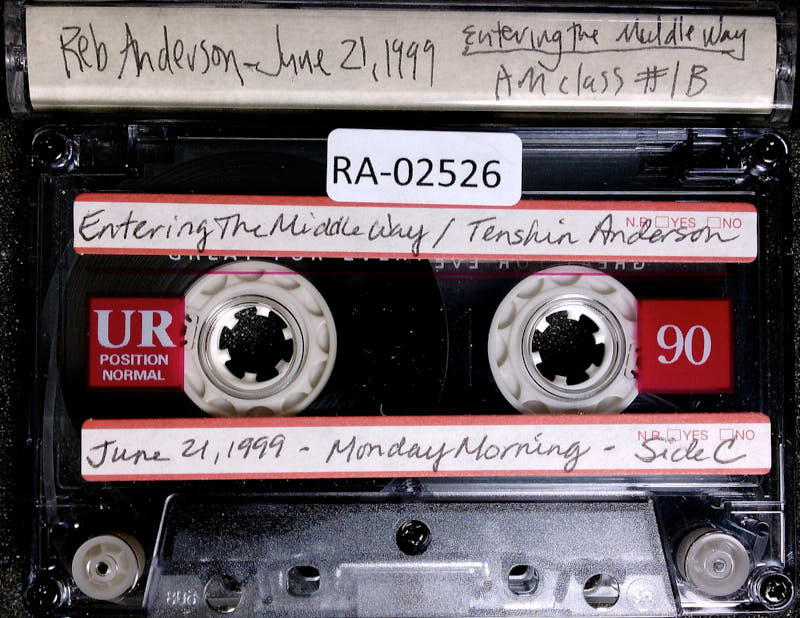 Reb Anderson - June 21, 1999
Entering the Middle Way
AM class #1B
RA-02526
N.R. □YES □NO
Entering The Middle Way / Tenshin Anderson
UR
POSITION
NORMAL
90
N.R. □YES □NO
June 21, 1999 - Monday Morning - Side C